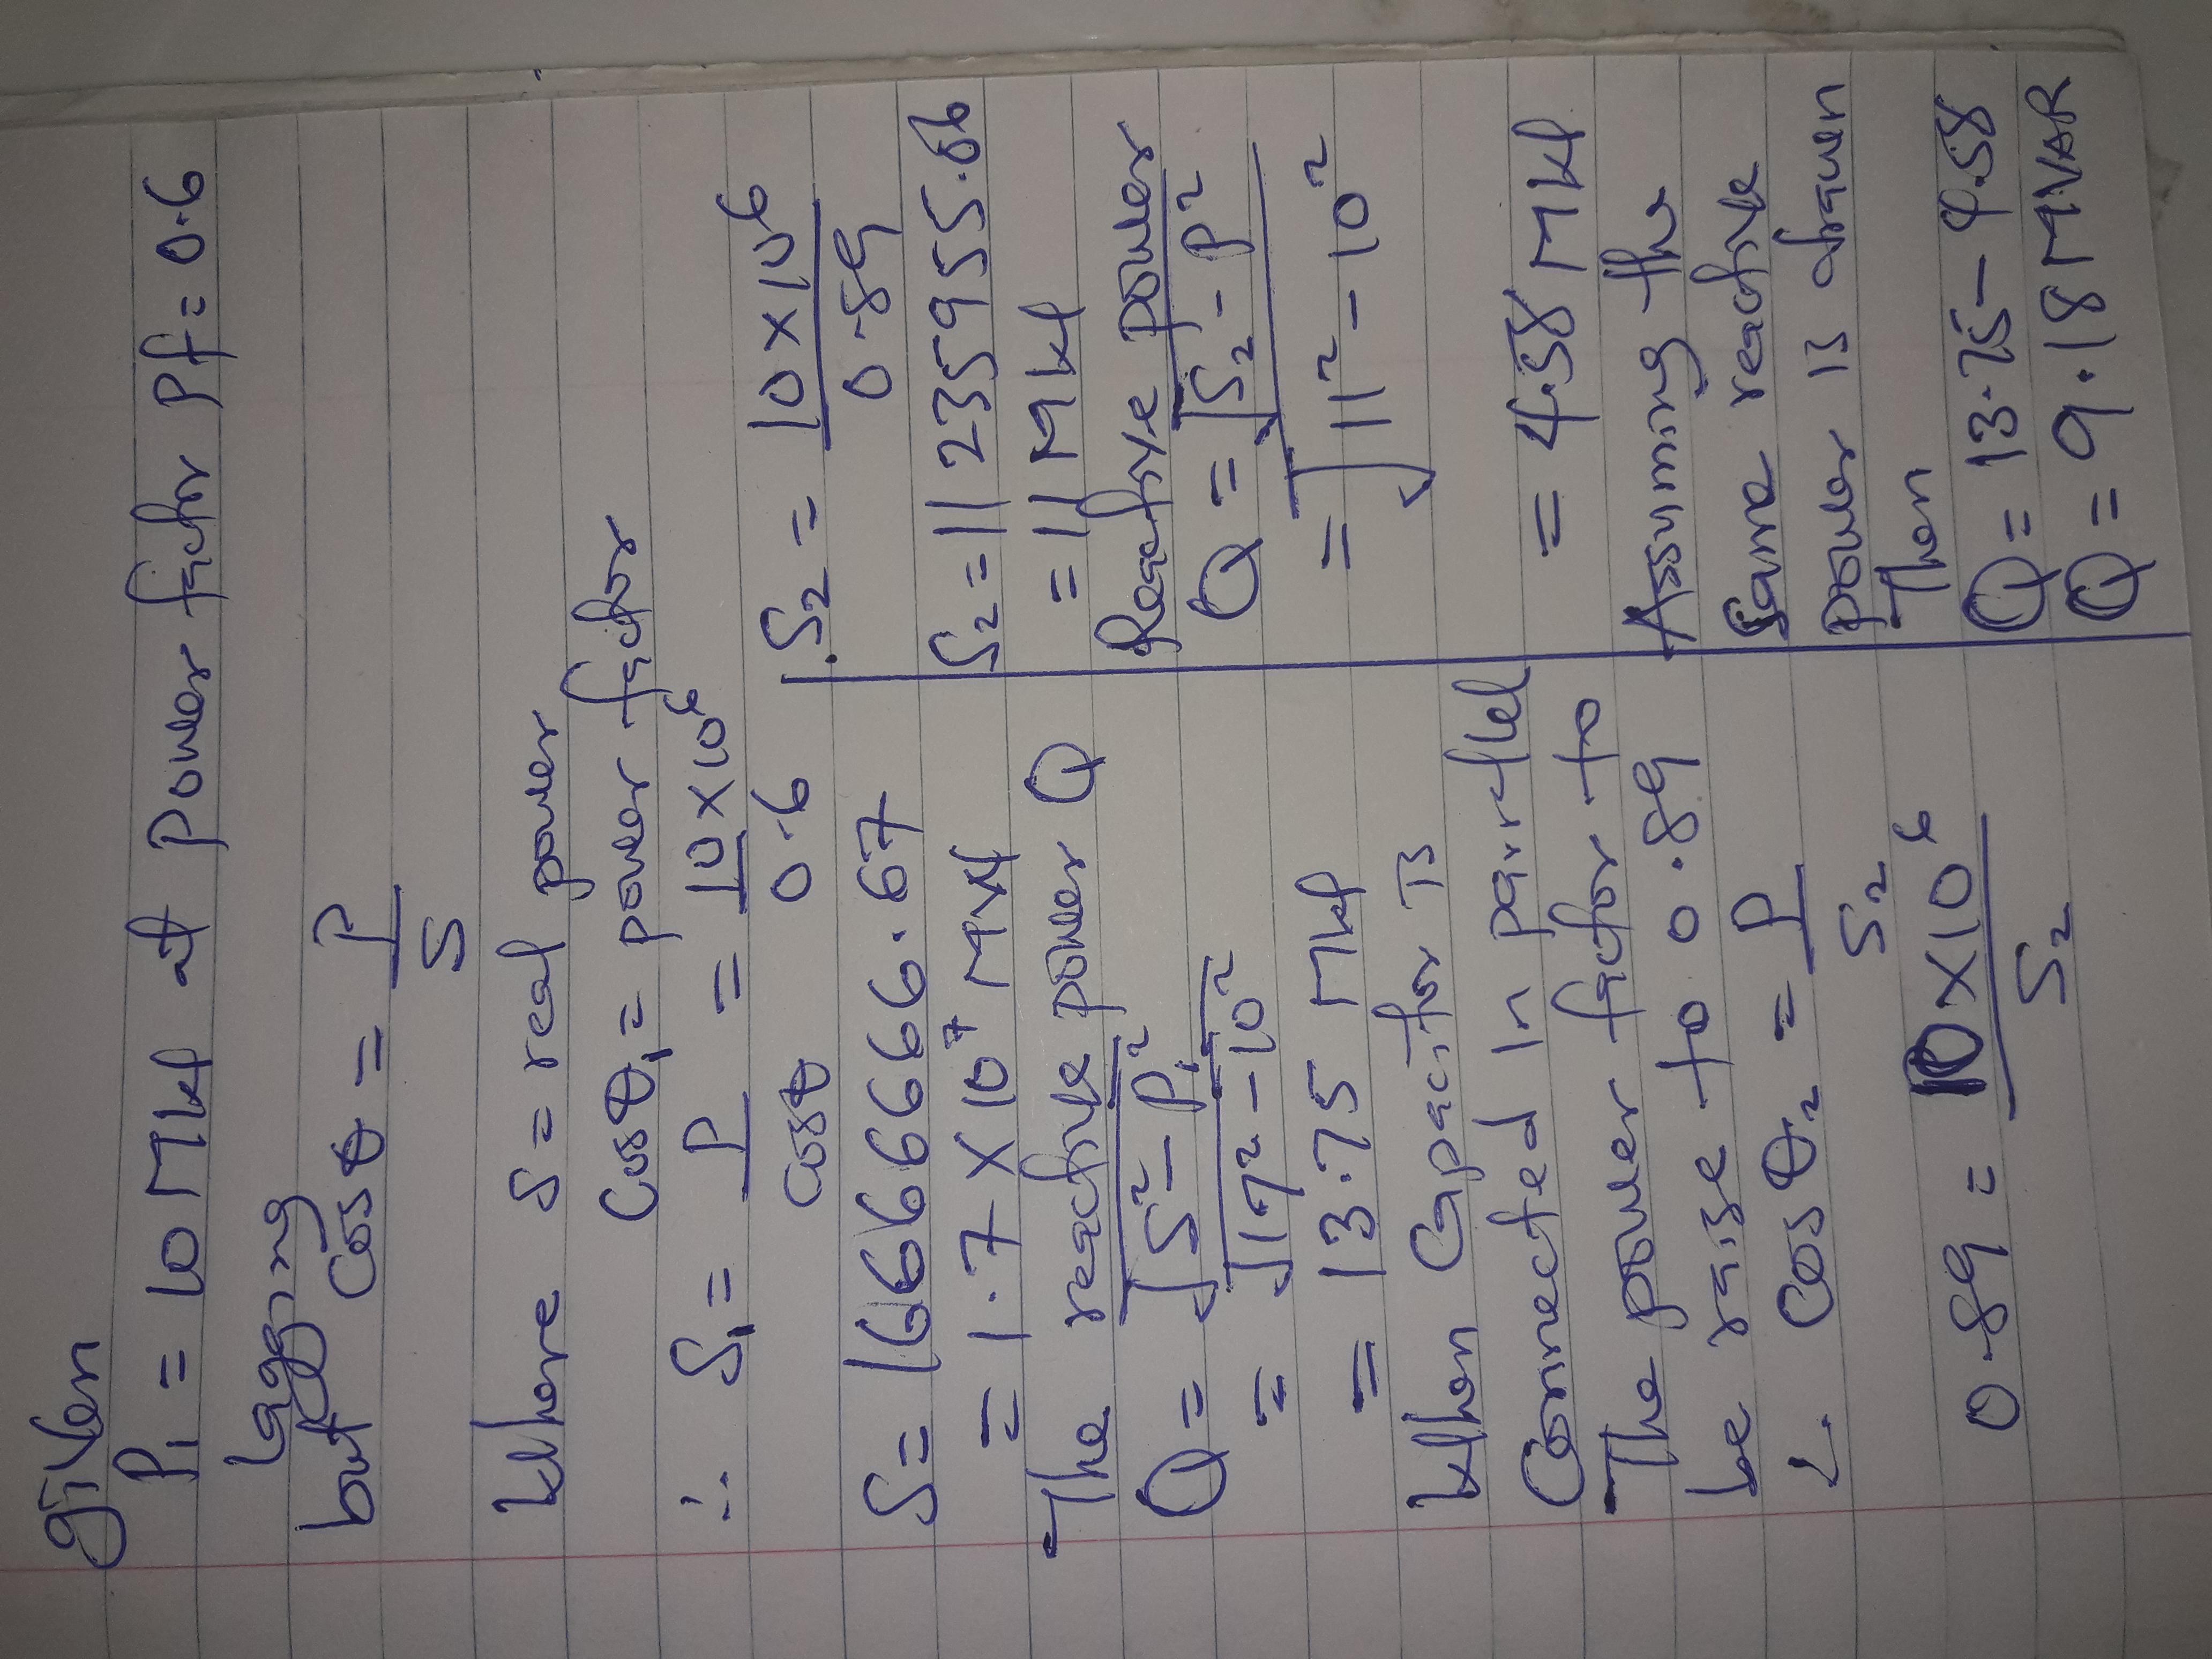 given
P₁ = 10 MW at power factor Pf = 0.6
lagging
but cos θ = P/S
Where S = real power
Cos θ₁ = power factor
∴ S₁ = P/cos θ = 10 × 10⁶/0.6
S = 16666666.67
= 1.7 × 10⁷ MW
The reactive power Q
Q = √S² - P²
= √17² - 10²
= 13.75 MW
When Capacitor is
Connected in parallel
The power factor to
be raise to 0.89
∴ Cos θ₂ = P/S₂
0.89 = 10 × 10⁶/S₂
S₂ = 10 × 10⁶/0.89
S₂ = 11235955.06
= 11 MW
Reactive power
Q = √S₂ - P²
= √11² - 10²
= 4.58 MW
Assuming the
Same reactive
power is drawn
Then
Q = 13.75 - 4.58
Q = 9.18 MVAR